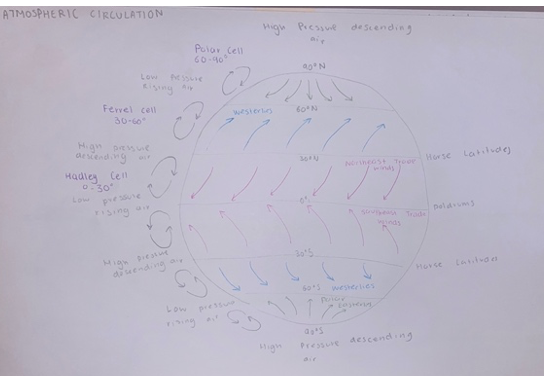 ATMOSPHERIC CIRCULATION
High Pressure descending
air
Polar Cell
60-90°
90°N
Low pressure
rising air
Ferrel cell
30-60°
westerlies
60°N
High pressure
descending air
30°N
Northeast Trade
winds
Horse Latitudes
Hadley Cell
0-30°
Low pressure
rising air
0°
Southeast Trade
winds
Doldrums
High pressure
descending air
30°S
Horse Latitudes
60°S
westerlies
Low pressure
rising air
Polar
Easterlies
90°S
High Pressure descending
air